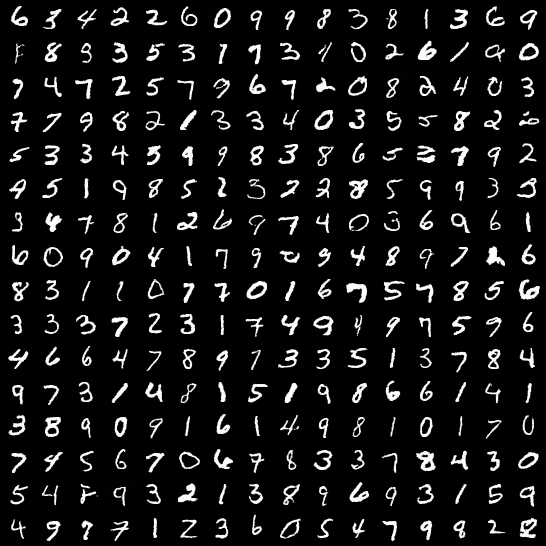 6 3 4 2 2 6 0 9 9 8 3 8 1 3 6 9
8 9 3 5 3 1 7 3 1 0 2 6 1 9 0
7 4 7 2 5 7 9 6 7 2 0 8 2 4 0 3
7 7 9 8 2 1 3 3 4 0 3 5 5 8 2 2
5 3 3 4 5 9 9 8 3 8 6 5 2 7 9 2
9 5 1 9 8 5 2 3 2 2 8 5 9 9 3 3
3 4 7 8 1 2 6 9 7 4 0 3 6 9 6 1
6 0 9 0 4 1 7 9 9 4 8 9 7 6
8 3 1 1 0 7 7 0 1 6 7 5 7 8 5 6
3 3 3 7 2 3 1 7 4 9 4 9 7 5 9 6
4 6 6 4 7 8 9 7 3 3 5 1 3 7 8 4
9 7 3 1 4 8 1 5 1 9 8 6 6 1 4 1
3 8 9 0 9 1 6 1 4 9 8 1 0 1 7 0
7 4 5 6 7 0 6 7 8 3 3 7 8 4 3 0
5 4 9 3 2 1 3 8 9 6 9 3 1 5 9
4 9 7 7 1 2 3 6 0 5 4 7 9 8 2